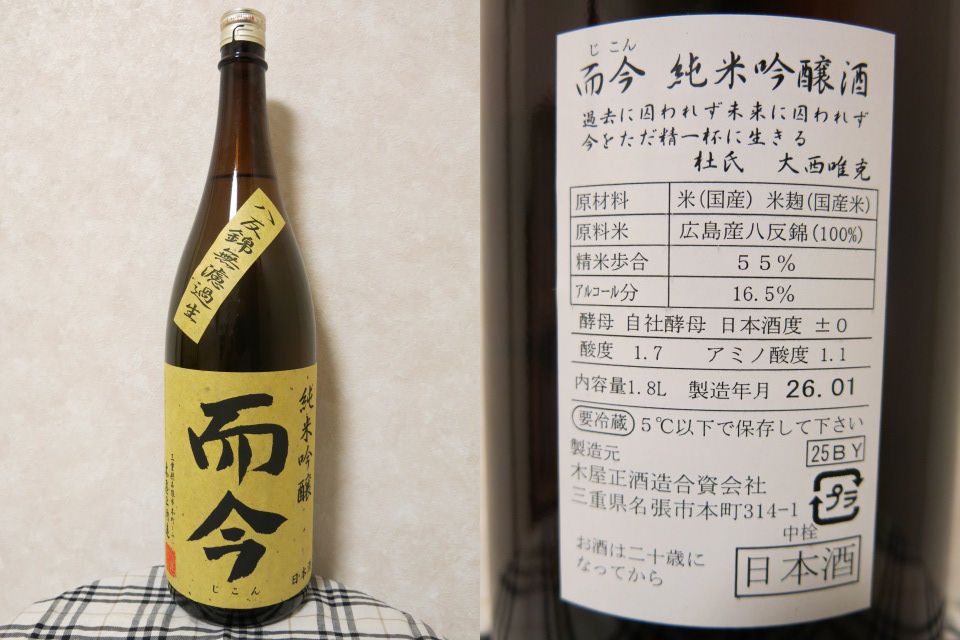 八反錦無濾過生
純米吟醸
而今
じこん
日本酒
じ こん
而今 純米吟醸酒
過去に囚われず未来に囚われず
今をただ精一杯に生きる
杜氏 大西唯克
原材料 米(国産) 米麹(国産米)
原料米 広島産八反錦(100%)
精米歩合 55%
アルコール分 16.5%
酵母 自社酵母 日本酒度 ±0
酸度 1.7 アミノ酸度 1.1
内容量1.8L 製造年月 26.01
要冷蔵 5℃以下で保存して下さい
25BY
製造元
木屋正酒造合資会社
三重県名張市本町314-1
プラ
中栓
お酒は二十歳に
なってから
日本酒